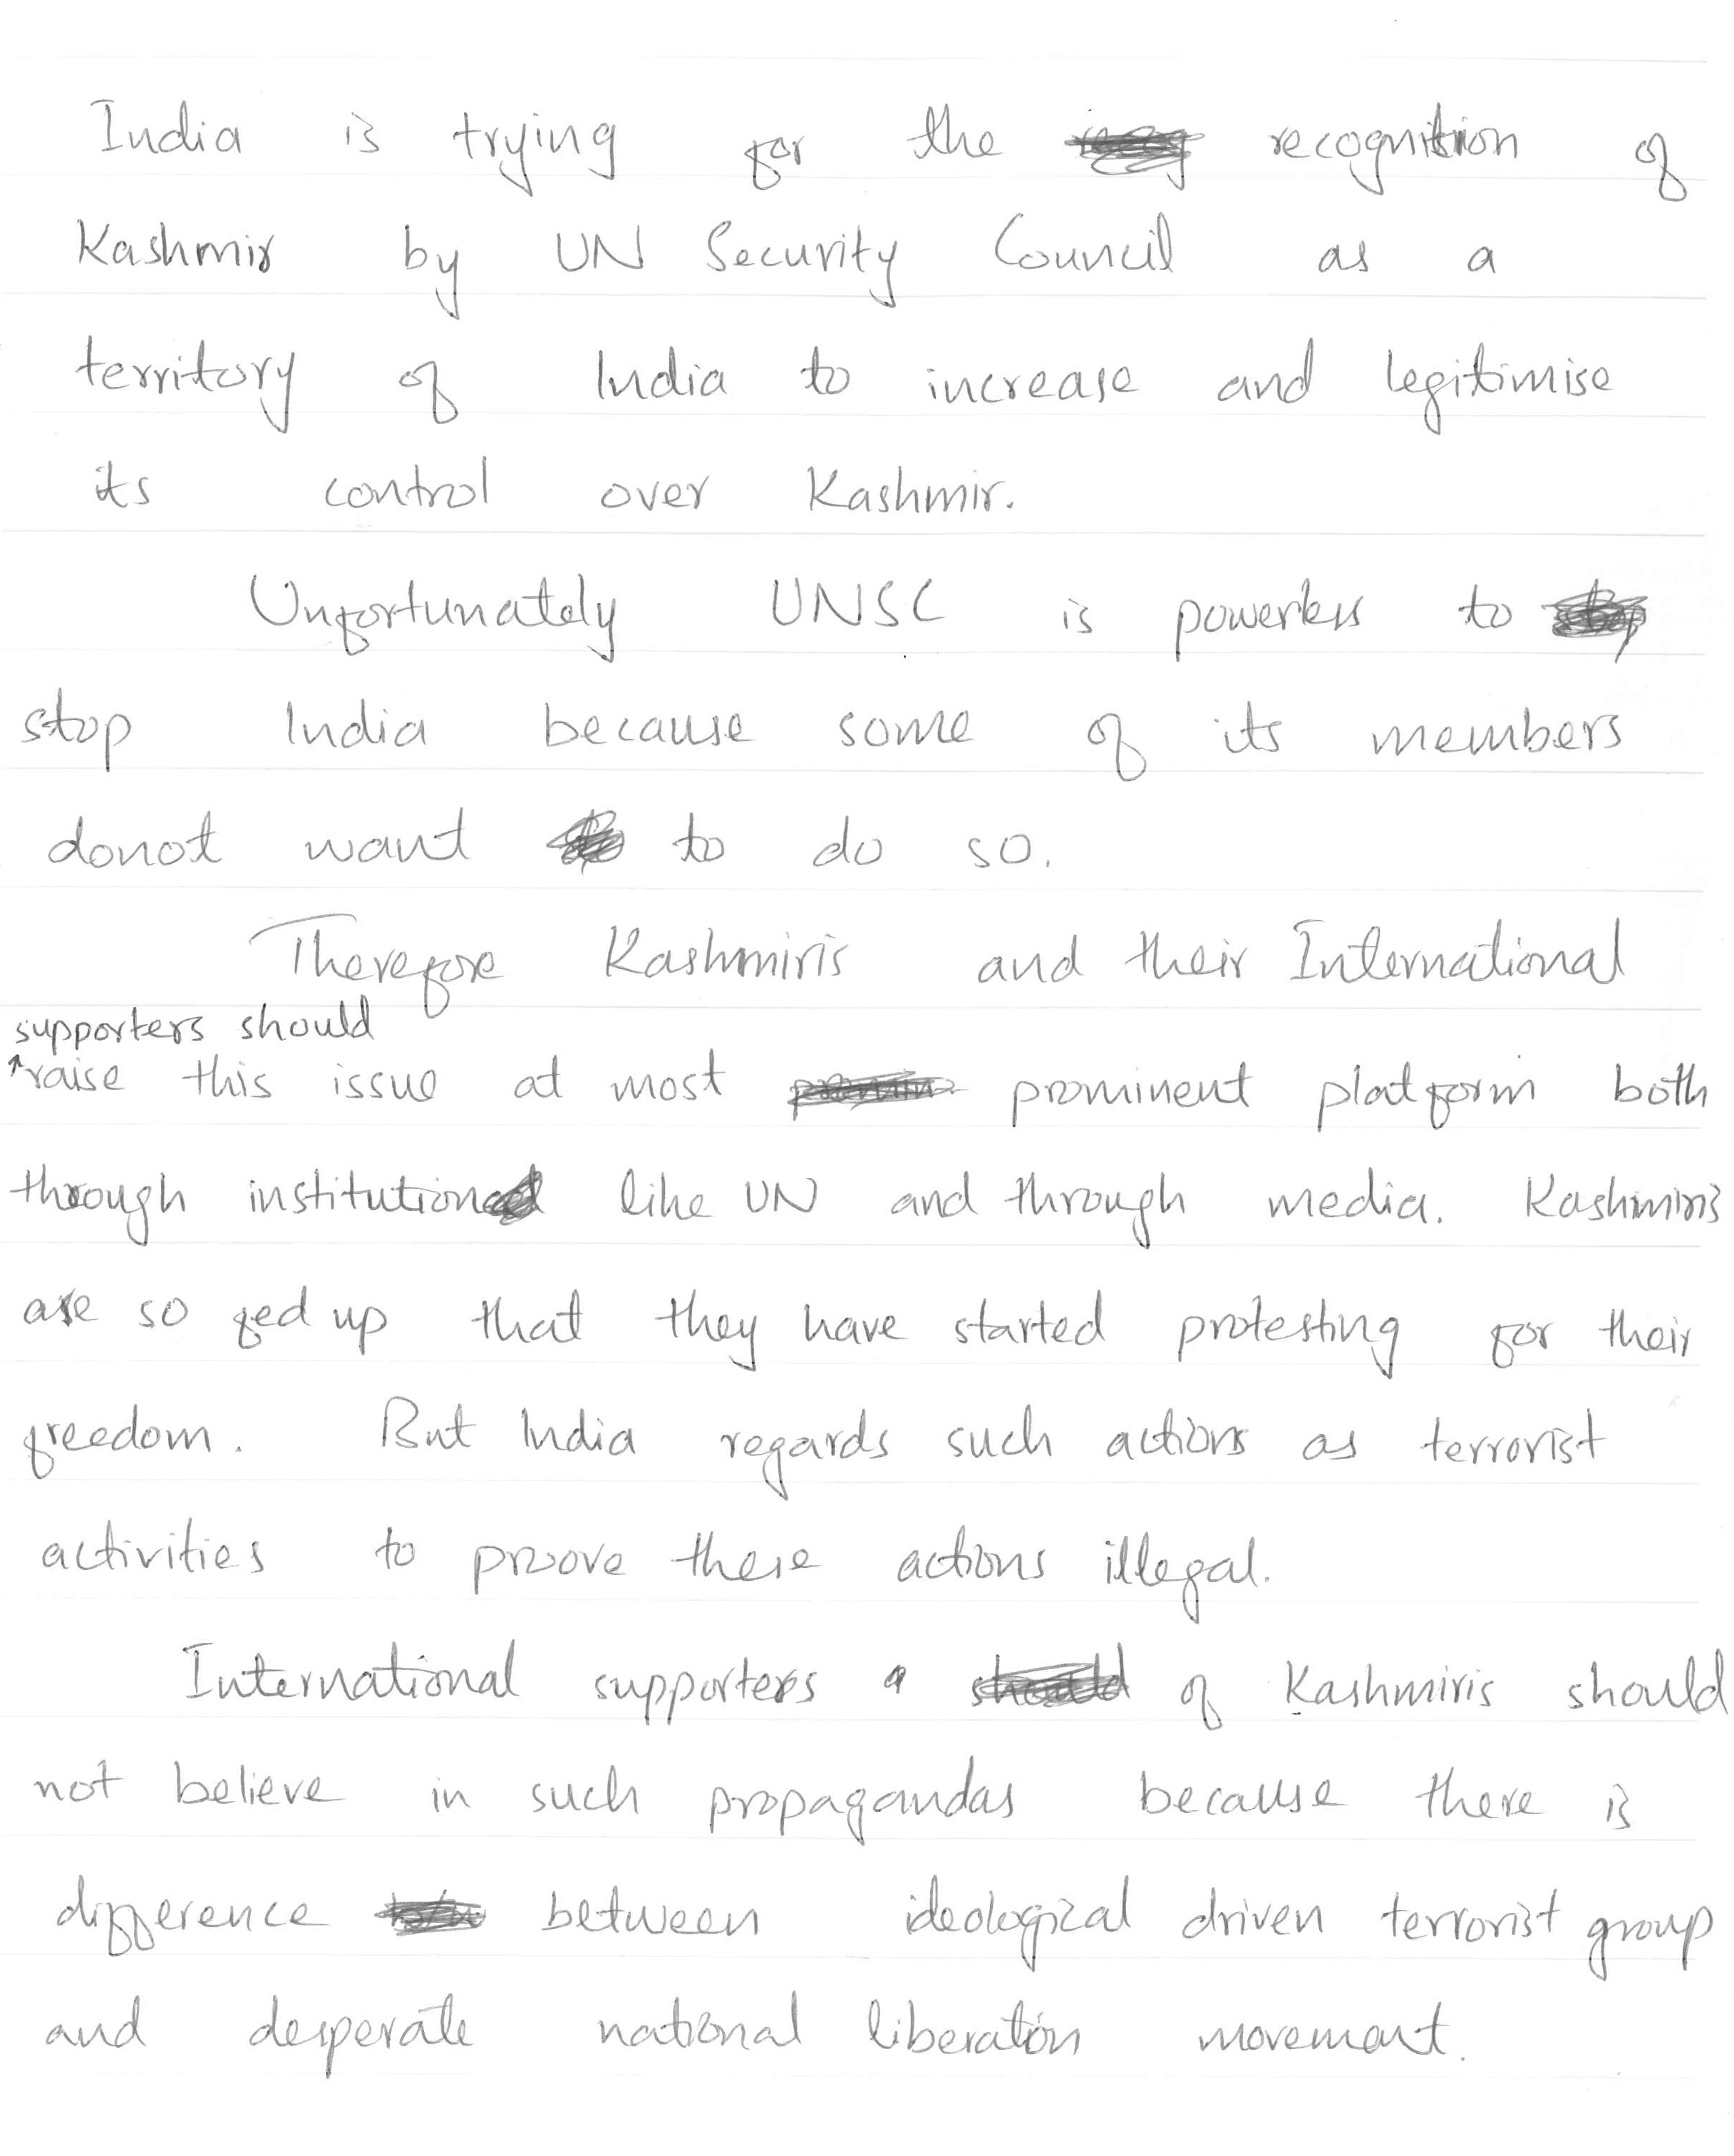 India is trying for the recognition of
Kashmir by UN Security Council as a
territory of India to increase and legitimise
its control over Kashmir.
Unfortunately UNSC is powerless to
stop India because some of its members
donot want to do so.
Therefore Kashmiris and their International
supporters should
raise this issue at most prominent platform both
through institution like UN and through media. Kashmiris
are so fed up that they have started protesting for their
freedom. But India regards such actions as terrorist
activities to proove these actions illegal.
International supporters of Kashmiris should
not believe in such propagandas because there is
difference between ideological driven terrorist group
and desperate national liberation movement.